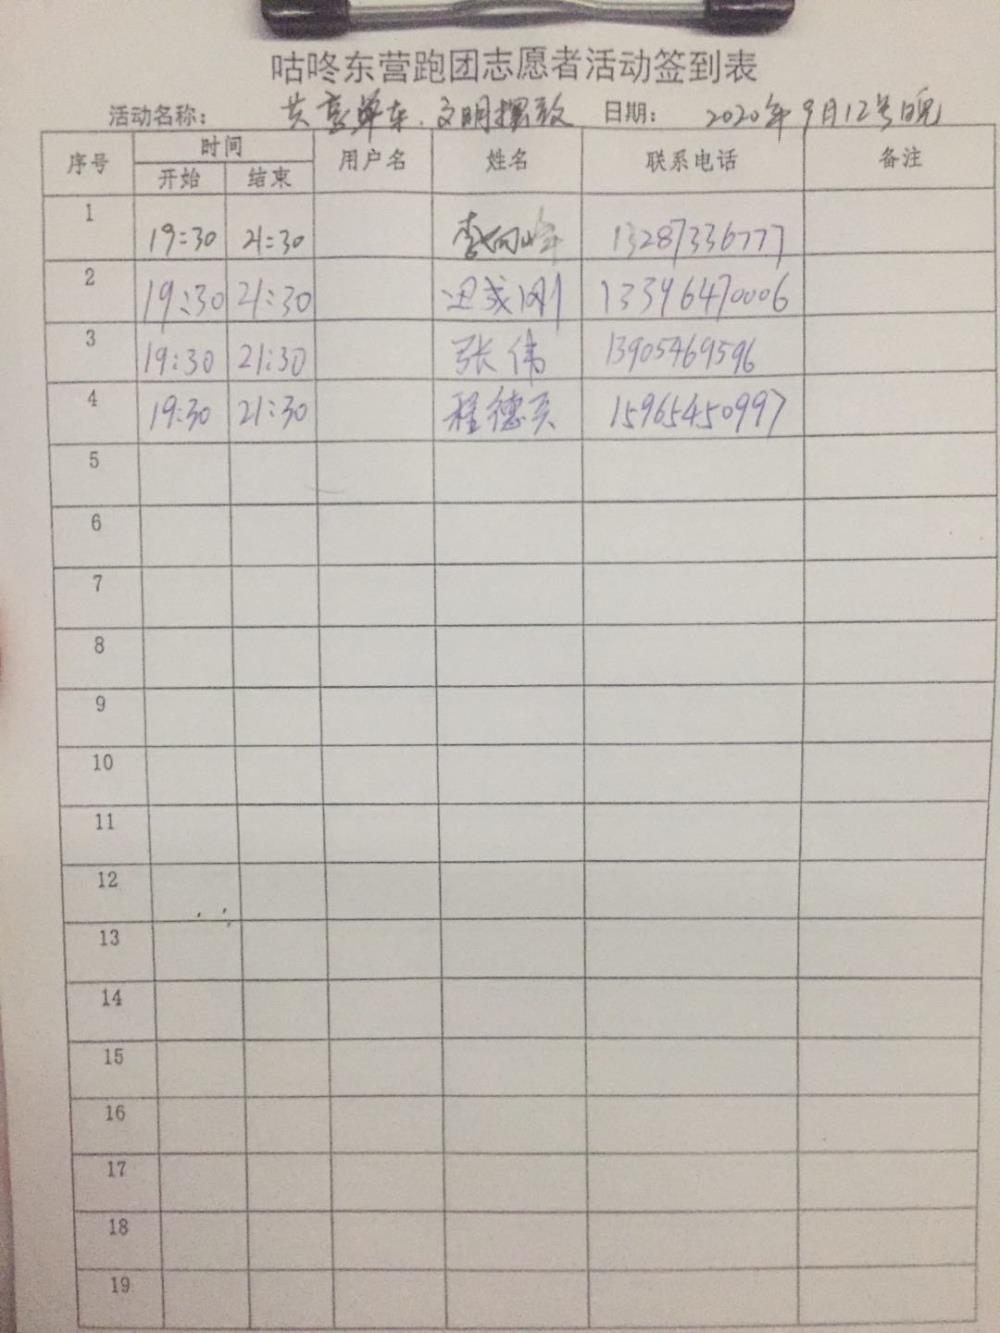 咕咚东营跑团志愿者活动签到表
活动名称: 共享单车.文明摆放 日期: 2020年9月12号晚
序号 时间 用户名 姓名 联系电话 备注
开始 结束
1 19:30 21:30 李向峰 13287336777
2 19:30 21:30 成刚 13396470006
3 19:30 21:30 张伟 13905469596
4 19:30 21:30 程德 15965450997
5
6
7
8
9
10
11
12
13
14
15
16
17
18
19